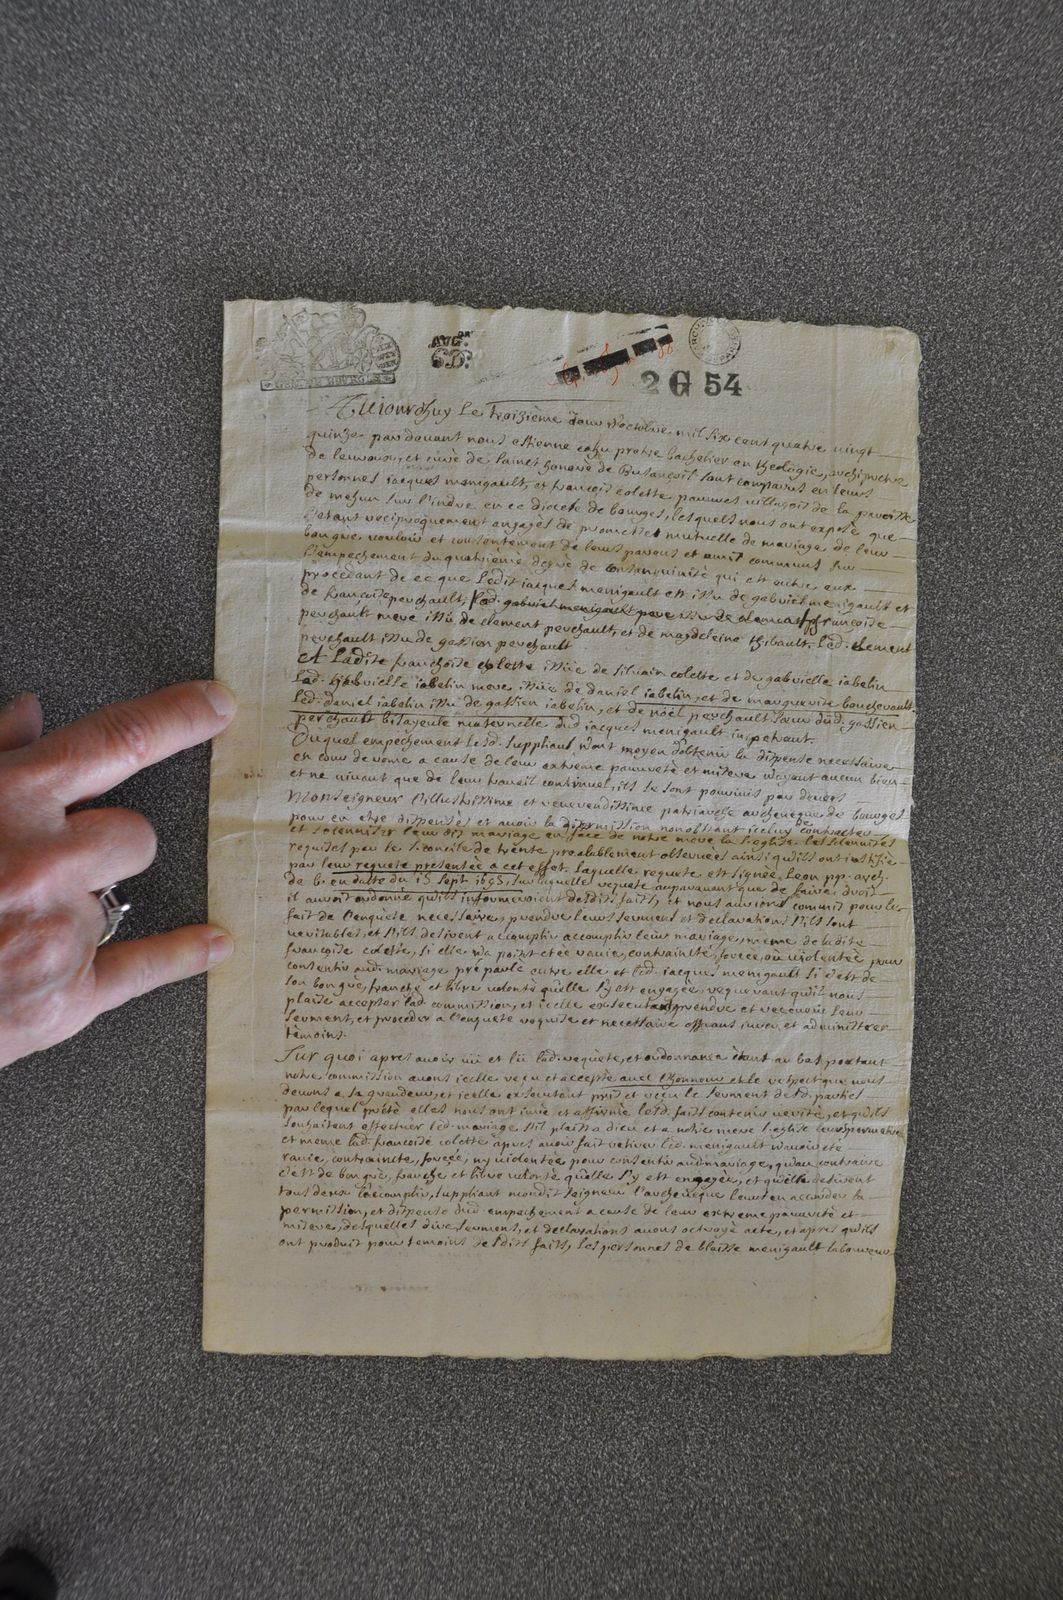 GEN. DE BOURGES
AVG.on
6D.
2 G 54
Aujourdhuy le troizième Jour d'octobre mil six cent quatre vingt
quinze par devant nous estienne cahu pretre bachelier en theologie, archipretre
de levroux, et curé de sainct honoré de Busançois sont comparus en leurs
personnes jacques menigault, et françois colette pauvres villageois de la paroisse
de mehun sur l'indre en ce diocese de bourges, lesquels nous ont exposé que
s'etant reciproquement engagés de promesses mutuelle de mariage, de leur
bon gré, vouloir et consentement de leurs parens et amis communs sur
l'empechement du quatrième degré de consanguinité qui est entre eux
procedant de ce que ledit jacques menigault est issu de gabriel menigault et
de françoise perchault, lad. françoise
perchault mere issüe de clement perchault, et de magdeleine thibault, led. clement
perchault issu de gassien perchault
et ladite françoise colette issüe de silvain colette et de gabrielle iabelin
lad. gabrielle iabelin mere issüe de daniel iabelin, et de marguerite boucherault
led. daniel iabelin issu de gassien iabelin, et de noël perchault sœur dud. gassien
perchault bisayeule maternelle dud jacques menigault impetrant.
Duquel empêchement lesd. suppliants n'ont moyen d'obtenir la dispense necessaire
en cour de rome a cause de leur extrême pauvreté et misere n'ayant aucun bien
et ne vivant que de leur travail continuel, ils se sont pourvus par devers
Monseigneur l'illustrissime et reverendissime patriarche archevêque de bourges
pour en etre dispensés et avoir la permission nonobstant iceluy de contracter
et solenniser leur dit mariage en face de notre mere la s. eglise les solennités
requises par le s. concile de trente prealablement observées ainsi qu'ils ont justifié
par leur requete presentée a cet effet. laquelle requete est signée Leon pp. arch.
de b. en datte du 15 sept 1695, sur laquelle requete auparavant que de faire droit
il auroit ordonné qu'ils informeroient desdits faits, et nous auroit commis pour le
fait de l'enquête necessaire, prendre leurs serment et declarations s'ils sont
veritables, et s'ils desirent accomplir accomplir leur mariage, meme de ladite
françoise colette, si elle n'a point eté ravie, contrainte, forcée, ou violentée pour
consentir aud. mariage préparlé entre elle et led. jacques menigault si c'est de
son bon gré, franche et libre volonté qu'elle s'y est engagée, requerant qu'il nous
plaise accepter lad. commission, et icelle executant prendre et recevoir leur
serment, et proceder a l'enquete requise et necessaire offrans jurer et administrer
témoins.
Sur quoi apres avoir vu et lü lad. requête, et ordonnance étant au bas portant
notre commission avons icelle reçu et accepté avec l'honneur et le respect que nous
devons a sa grandeur, et icelle executant pris et reçu le serment desd. parties
par lequel prété elles nous ont juré et affirmé lesd. faits contenir verité, et qu'ils
souhaitent effectuer led. mariage s'il plaist a dieu et a notre mere l'eglise leur permettre
et meme lad. françoise colette apres avoir fait retirer led. menigault n'avoir eté
ravie, contrainte, forcée, ny violentée pour consentir aud. mariage, qu'au contraire
c'est de bon gré, franche et libre volonté qu'elle s'y est engagée, et qu'elle desirent
tous deux l'accomplir, suppliant mondit seigneur l'archeveque leur en accorder la
permission, et dispense dud. empechement a cause de leur extreme pauvreté et
misere, desquelles dire, serment, et declarations avons octroyé acte, et apres qu'ils
ont produit pour temoins desdits faits, les personnes de blaise menigault laboureur